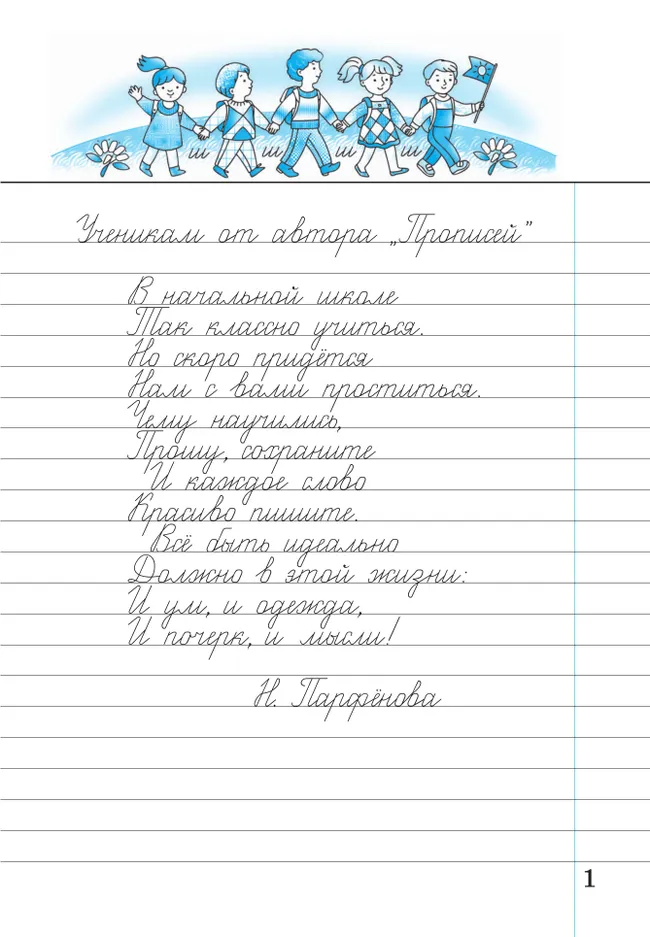 Ученикам от автора „Прописей”
В начальной школе
Так классно учиться.
Но скоро придётся
Нам с вами проститься.
Чему научились,
Прошу, сохраните
И каждое слово
Красиво пишите.
Всё быть идеально
Должно в этой жизни:
И ум, и одежда,
И почерк, и мысли!
Н. Парфёнова
1